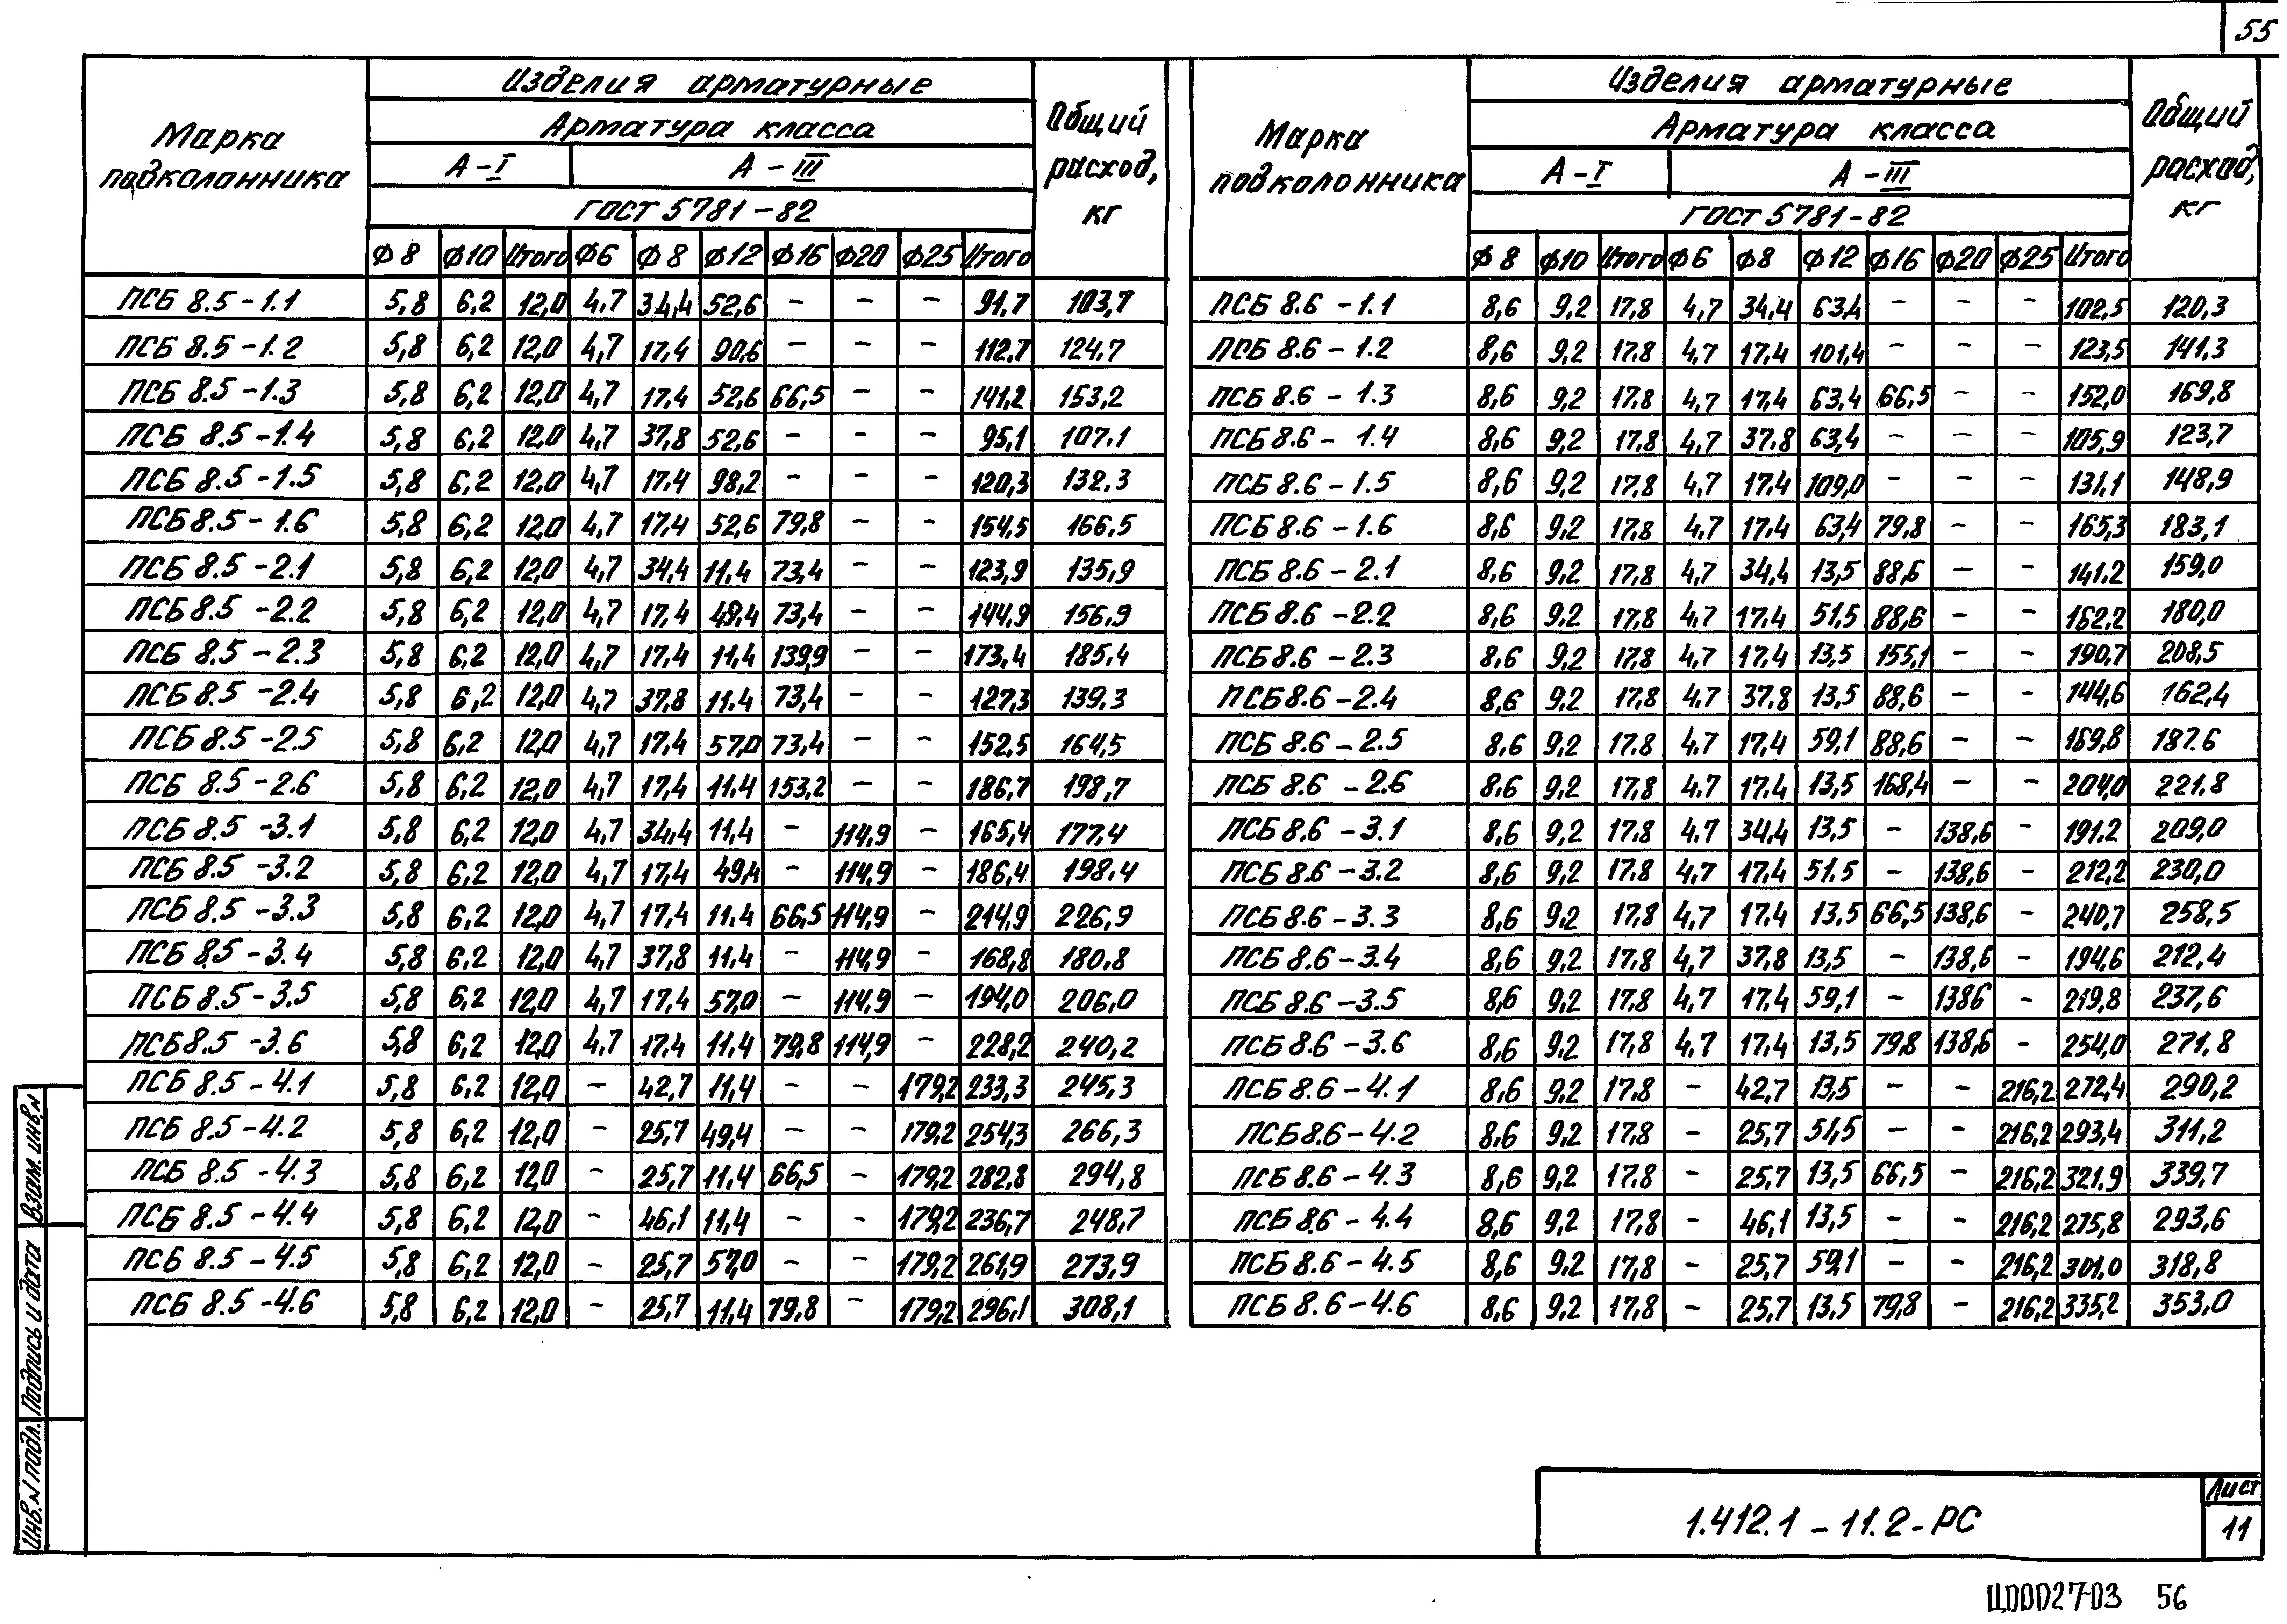 55
Марка подколонника
Изделия арматурные
Арматура класса
А-I А-III
ГОСТ 5781-82
Общий расход, кг
Ф8 Ф10 Итого Ф6 Ф8 Ф12 Ф16 Ф20 Ф25 Итого
ПСБ 8.5-1.1 5,8 6,2 12,0 4,7 34,4 52,6 - - - 91,7 103,7
ПСБ 8.5-1.2 5,8 6,2 12,0 4,7 17,4 90,6 - - - 112,7 124,7
ПСБ 8.5-1.3 5,8 6,2 12,0 4,7 17,4 52,6 66,5 - - 141,2 153,2
ПСБ 8.5-1.4 5,8 6,2 12,0 4,7 37,8 52,6 - - - 95,1 107.1
ПСБ 8.5-1.5 5,8 6,2 12,0 4,7 17.4 98,2 - - - 120,3 132.3
ПСБ 8.5-1.6 5,8 6,2 12,0 4,7 17,4 52,6 79,8 - - 154,5 166,5
ПСБ 8.5-2.1 5,8 6,2 12,0 4,7 34,4 11,4 73,4 - - 123,9 135,9
ПСБ 8.5-2.2 5,8 6,2 12,0 4,7 17,4 49,4 73,4 - - 144,9 156,9
ПСБ 8.5-2.3 5,8 6,2 12,0 4,7 17,4 11,4 139,9 - - 173,4 185,4
ПСБ 8.5-2.4 5,8 6,2 12,0 4,7 37,8 11,4 73,4 - - 127,3 139,3
ПСБ 8.5-2.5 5,8 6,2 12,0 4,7 17,4 57,0 73,4 - - 152,5 164,5
ПСБ 8.5-2.6 5,8 6,2 12,0 4,7 17,4 11,4 153,2 - - 186,7 198,7
ПСБ 8.5-3.1 5,8 6,2 12,0 4,7 34,4 11,4 - 114,9 - 165,4 177,4
ПСБ 8.5-3.2 5,8 6,2 12,0 4,7 17,4 49,4 - 114,9 - 186,4 198,4
ПСБ 8.5-3.3 5,8 6,2 12,0 4,7 17,4 11,4 66,5 114,9 - 214,9 226,9
ПСБ 8.5-3.4 5,8 6,2 12,0 4,7 37,8 11,4 - 114,9 - 168,8 180,8
ПСБ 8.5-3.5 5,8 6,2 12,0 4,7 17,4 57,0 - 114,9 - 194,0 206,0
ПСБ 8.5-3.6 5,8 6,2 12,0 4,7 17,4 11,4 79,8 114,9 - 228,2 240,2
ПСБ 8.5-4.1 5,8 6,2 12,0 - 42,7 11,4 - - 179,2 233,3 245,3
ПСБ 8.5-4.2 5,8 6,2 12,0 - 25,7 49,4 - - 179,2 254,3 266,3
ПСБ 8.5-4.3 5,8 6,2 12,0 - 25,7 11,4 66,5 - 179,2 282,8 294,8
ПСБ 8.5-4.4 5,8 6,2 12,0 - 46,1 11,4 - - 179,2 236,7 248,7
ПСБ 8.5-4.5 5,8 6,2 12,0 - 25,7 57,0 - - 179,2 261,9 273,9
ПСБ 8.5-4.6 5,8 6,2 12,0 - 25,7 11,4 79,8 - 179,2 296,1 308,1
Марка подколонника
Изделия арматурные
Арматура класса
А-I А-III
ГОСТ 5781-82
Общий расход, кг
Ф8 Ф10 Итого Ф6 Ф8 Ф12 Ф16 Ф20 Ф25 Итого
ПСБ 8.6-1.1 8,6 9,2 17,8 4,7 34,4 63,4 - - - 102,5 120,3
ПСБ 8.6-1.2 8,6 9,2 17.8 4,7 17,4 101,4 - - - 123,5 141,3
ПСБ 8.6-1.3 8,6 9,2 17,8 4,7 17,4 63,4 66,5 - - 152,0 169,8
ПСБ 8.6-1.4 8,6 9,2 17,8 4,7 37,8 63,4 - - - 105,9 123,7
ПСБ 8.6-1.5 8,6 9,2 17,8 4,7 17,4 109,0 - - - 131,1 148,9
ПСБ 8.6-1.6 8,6 9,2 17,8 4,7 17,4 63,4 79,8 - - 165,3 183,1
ПСБ 8.6-2.1 8,6 9,2 17,8 4,7 34,4 13,5 88,6 - - 141,2 159,0
ПСБ 8.6-2.2 8,6 9,2 17,8 4,7 17,4 51,5 88,6 - - 162,2 180,0
ПСБ 8.6-2.3 8,6 9,2 17,8 4,7 17,4 13,5 155,1 - - 190,7 208,5
ПСБ 8.6-2.4 8,6 9,2 17,8 4,7 37,8 13,5 88,6 - - 144,6 162,4
ПСБ 8.6-2.5 8,6 9,2 17,8 4,7 17,4 59,1 88,6 - - 169,8 187.6
ПСБ 8.6-2.6 8,6 9,2 17,8 4,7 17,4 13,5 168,4 - - 204,0 221,8
ПСБ 8.6-3.1 8,6 9,2 17,8 4,7 34,4 13,5 - 138,6 - 191,2 209,0
ПСБ 8.6-3.2 8,6 9,2 17.8 4,7 17,4 51,5 - 138,6 - 212,2 230,0
ПСБ 8.6-3.3 8,6 9,2 17,8 4,7 17,4 13,5 66,5 138,6 - 240,7 258,5
ПСБ 8.6-3.4 8,6 9,2 17,8 4,7 37,8 13,5 - 138,6 - 194,6 212,4
ПСБ 8.6-3.5 8,6 9,2 17,8 4,7 17,4 59,1 - 1386 - 219,8 237,6
ПСБ 8.6-3.6 8,6 9,2 17,8 4,7 17,4 13,5 79,8 138,6 - 254,0 271,8
ПСБ 8.6-4.1 8,6 9,2 17,8 - 42,7 13,5 - - 216,2 272,4 290,2
ПСБ 8.6-4.2 8,6 9,2 17,8 - 25,7 51,5 - - 216,2 293,4 311,2
ПСБ 8.6-4.3 8,6 9,2 17,8 - 25,7 13,5 66,5 - 216,2 321,9 339,7
ПСБ 8.6-4.4 8,6 9,2 17,8 - 46,1 13,5 - - 216,2 275,8 293,6
ПСБ 8.6-4.5 8,6 9,2 17,8 - 25,7 59,1 - - 216,2 301,0 318,8
ПСБ 8.6-4.6 8,6 9,2 17,8 - 25,7 13,5 79,8 - 216,2 335,2 353,0
Взам. инв. N
Подпись и дата
Инв. N подл.
1.412.1-11.2-РС
Лист
11
Ц00027-03 56